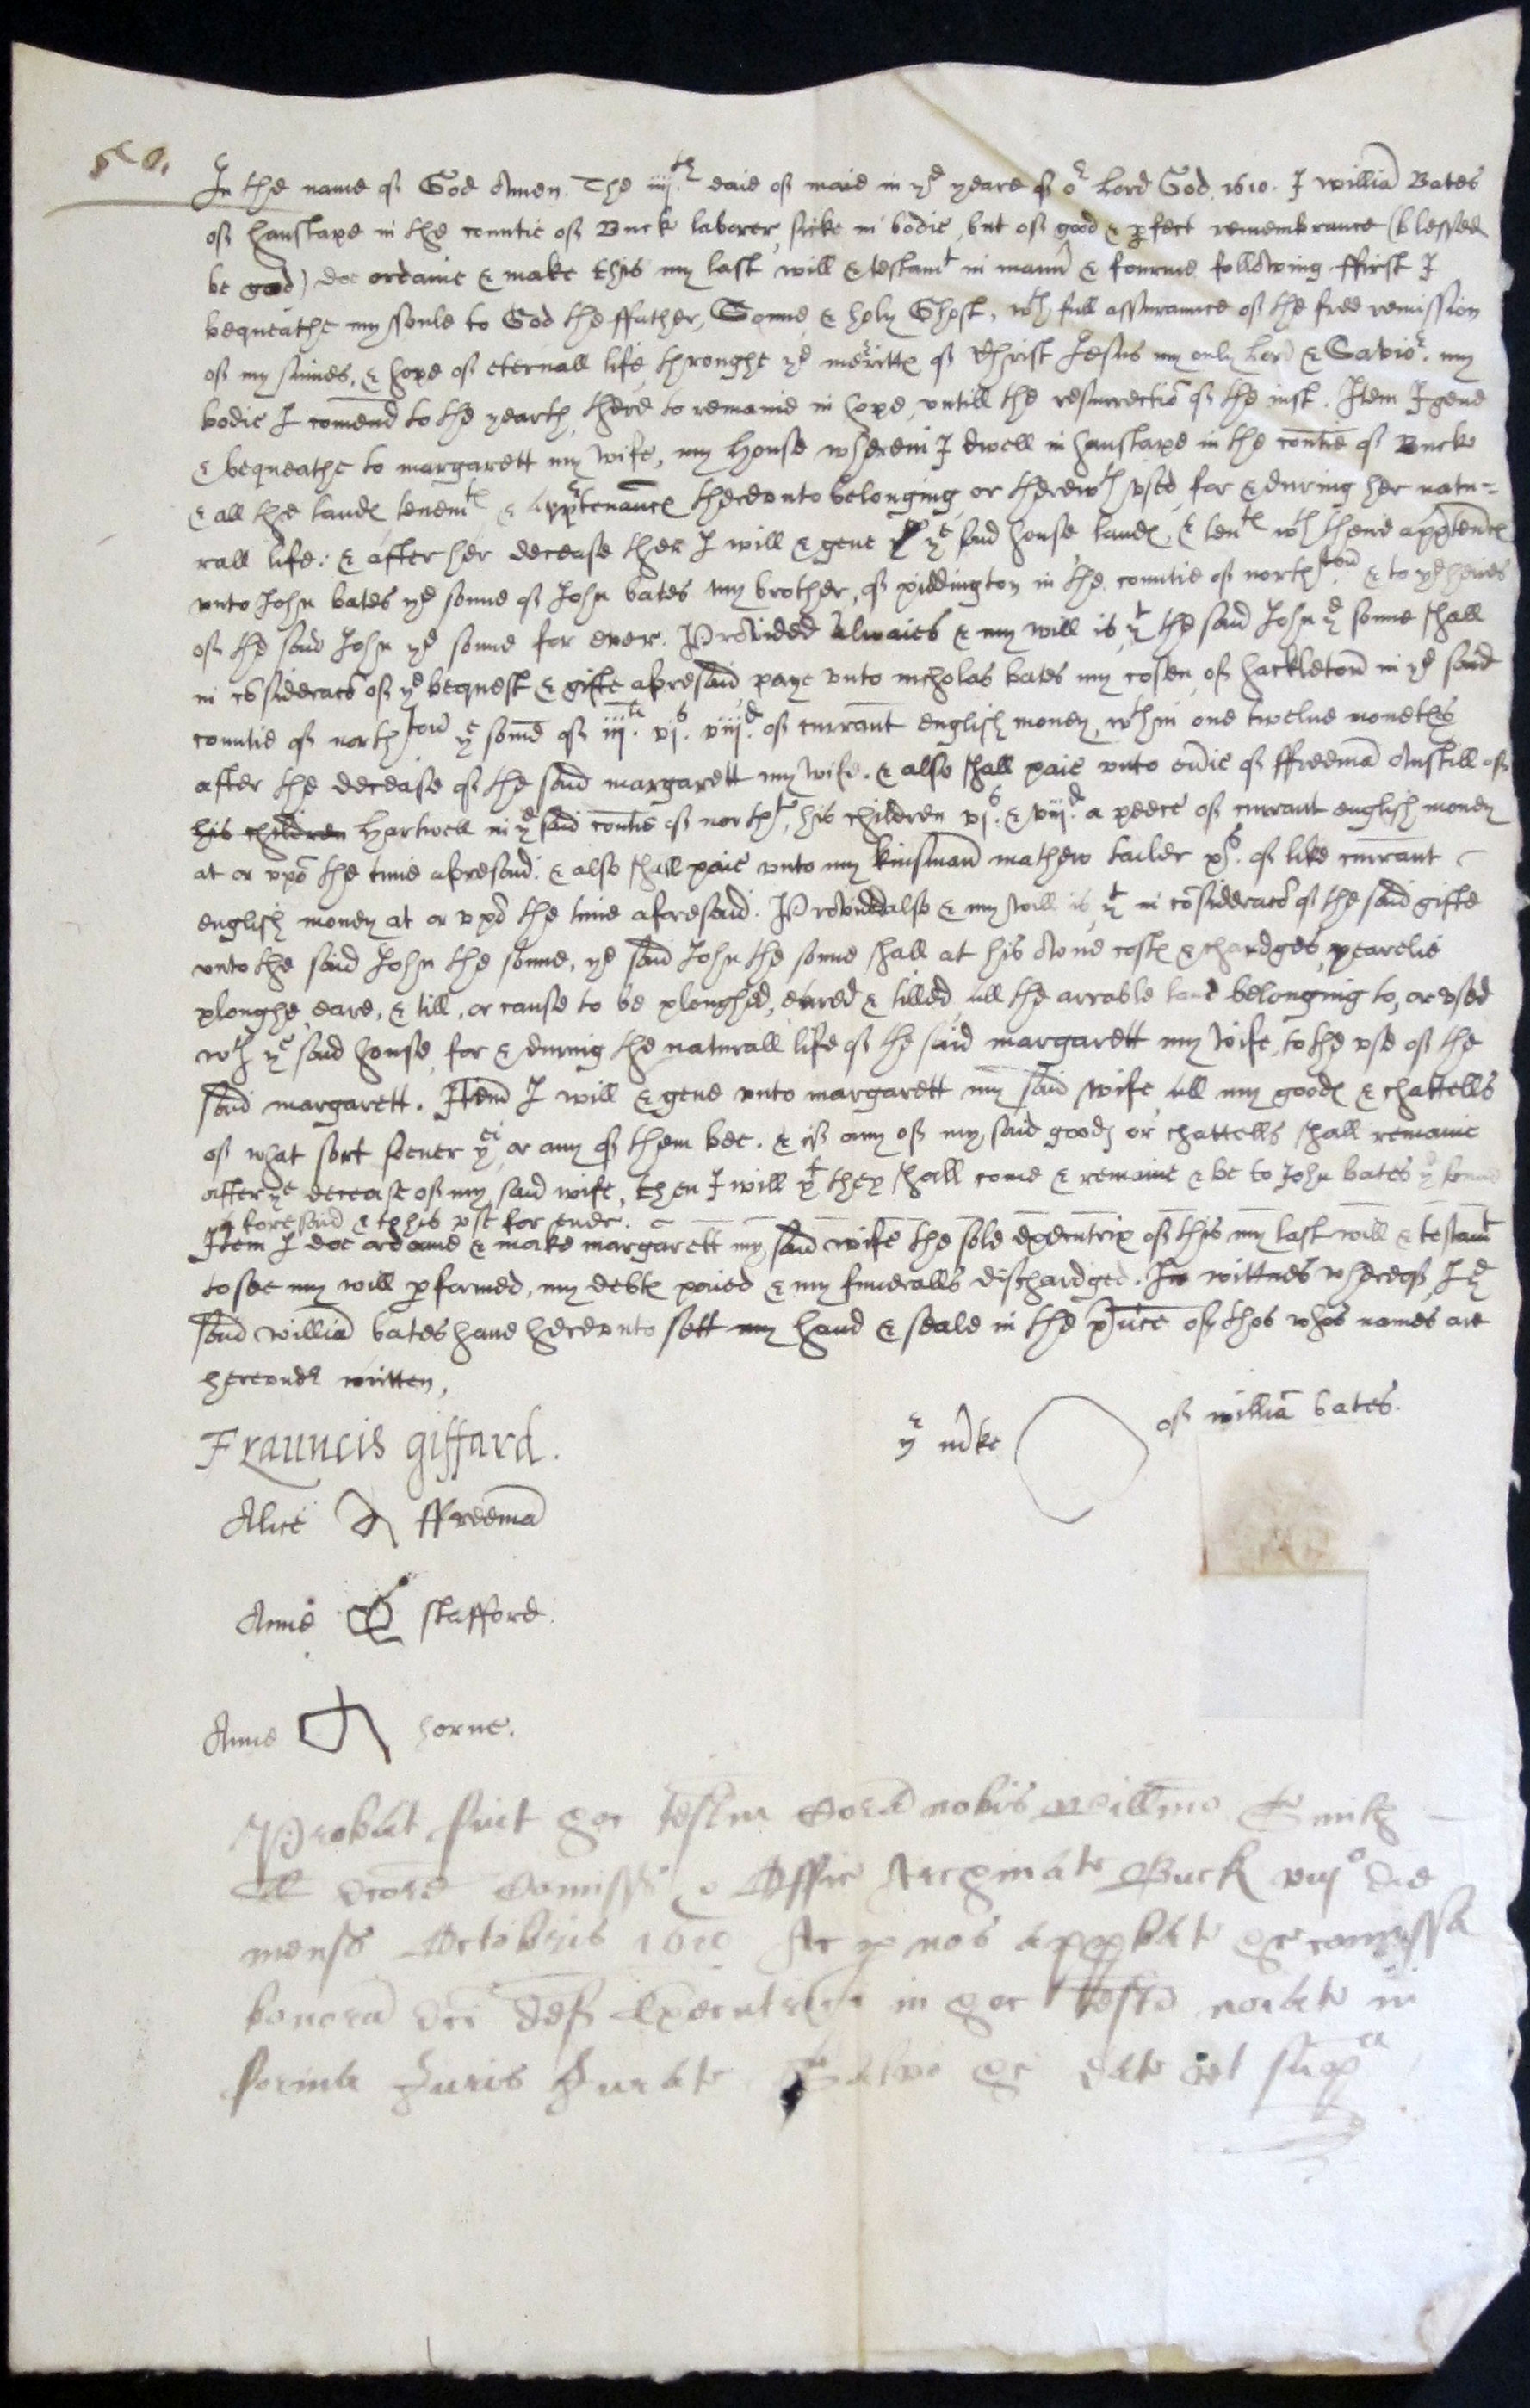 In the name of God Amen. The iiijth daie of maie in ye yeare of or Lord God 1610. I willia Bates
of hanslape in the countie of Buck laborer, sicke in bodie, but of good & pfect remembrance (blessed
be god) doe ordaine & make this my last will & testamt in mann & fourme following. ffirst I
bequeathe my soule to God the ffather, Sonne, & holy Ghost, wth full assuraunce of the free remission
of my sinnes, & hope of eternall life throughe ye meritts of Christ Jesus my only Lord & Savior. my
bodie I comend to the yearth, there to remaine in hope, untill the resurrectio of the iust. Item I geue
& bequeathe to margarett my wife, my House wherein I dwell in hanslape in the contie of Buck
& all the lands tenemts & apprtenances thereunto belonging, or therewth used, for & during her natu=
rall life: & after her decease then I will & geue ye said house lands, & tents wth theire apprtences
unto John bates ye sonne of John bates my brother, of piddington in the countie of northton & to ye heires
of the said John ye sonne for ever. Provided alwaies & my will is, yt the said John ye sonne shall
in cosideraco of ye bequest & gifte aforesaid paye unto nicholas bates my cosen of hackleton in ye said
countie of northton ye some of iijli. vjs. viijd. of currant english money, wthin one twelue monethes
after the decease of the said margarett my wife. & also shall paie unto eurie of ffreema Anstill of
his children Hartwell in ye said contie of northt, his children vjs. & viijd. a peece of currant english money
at or upo the time aforesaid: & also shall paie unto my kinsman mathew tailer xs. of like currant
english money at or upo the time aforesaid. Provided also & my will is yt in cosideraco of the said gifte
unto the said John the sonne, ye said John the sonne shall at his owne costs & chardges yearelie
ploughe, eare, & till, or cause to be ploughed, eared & tilled all the arrable land belonging to, or used
wth ye said house, for & during the naturall life of the said margarett my wife, to the use of the
said margarett. Item I will & geue unto margarett my said wife all my goods & chattells
of what sort soeuer yei or any of them bee. & if any of my said goods or chattells shall remaine
after ye decease of my said wife, then I will yt they shall come & remaine & be to John bates ye sonne
aforesaid & to his use for euer.
Item I doe ordaine & make margarett my said wife the sole executrix of this my last will & testamt
to see my will pformed, my debts paied & my funeralls dischardged. In wittnes whereof, I ye
said willia bates haue hereunto sett my hand & seale in the psence of thos whos names are
hereundr written,
ye mke of willia bates.
Frauncis giffard.
Alice ffreema
Anne stafford.
Anne horne.
Probat fuit hoc testm Cora nobis Willmo Smith
Comissr & Offic Archinat Buck viijo die
mens Octobris 1610 Ac p nos approbat &c comissa
bonoru dci def Executrici in hoc testo noiat in
forma Juris Jurat Salvo &c dat supa